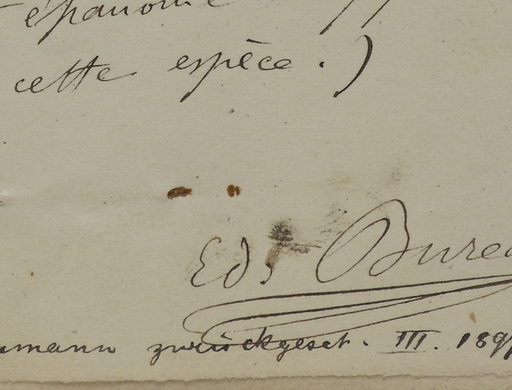 épanouie
cette espèce.)
Edd Bureau
zurückgeset. III. 189